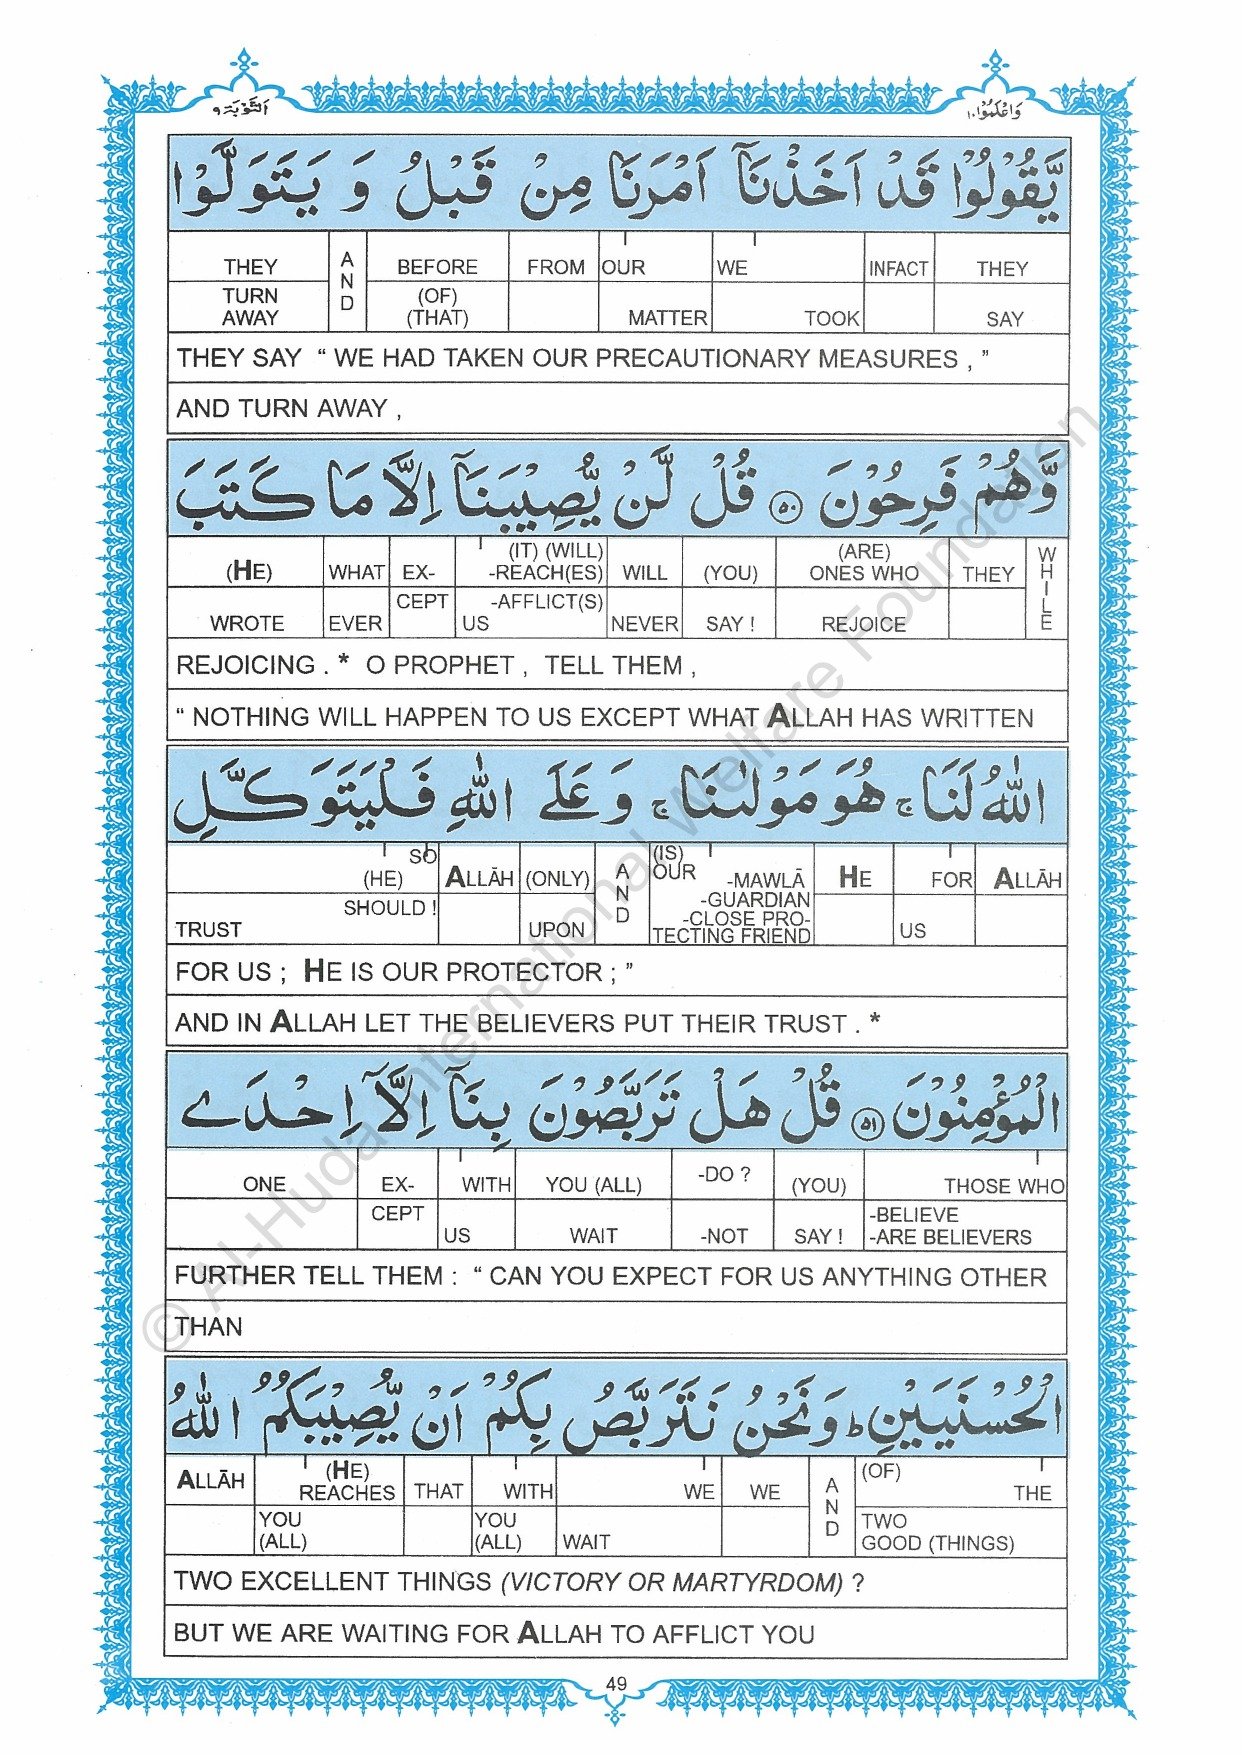 التَّوْبَة ٩
وَاعْلَمُوْا ١٠
يَّقُوْلُوْا قَدْ اَخَذْنَاۤ اَمْرَنَا مِنْ قَبْلُ وَ يَتَوَلَّوْا
THEY AND BEFORE FROM OUR WE INFACT THEY
TURN AWAY (OF) (THAT) MATTER TOOK SAY
THEY SAY “ WE HAD TAKEN OUR PRECAUTIONARY MEASURES , ”
AND TURN AWAY ,
وَّهُمْ فَرِحُوْنَ ۝٥٠ قُلْ لَّنْ يُّصِيْبَنَاۤ اِلَّا مَا كَتَبَ
(HE) WHAT EX- (IT) (WILL) -REACH(ES) WILL (YOU) (ARE) ONES WHO THEY WHILE
WROTE EVER CEPT -AFFLICT(S) US NEVER SAY ! REJOICE
REJOICING . * O PROPHET , TELL THEM ,
“ NOTHING WILL HAPPEN TO US EXCEPT WHAT ALLAH HAS WRITTEN
اللّٰهُ لَنَا ۚ هُوَ مَوْلٰىنَا ۚ وَ عَلَى اللّٰهِ فَلْيَتَوَكَّلِ
SO (HE) ALLĀH (ONLY) AND (IS) OUR -MAWLĀ HE FOR ALLĀH
TRUST SHOULD ! UPON -GUARDIAN -CLOSE PRO- TECTING FRIEND US
FOR US ; HE IS OUR PROTECTOR ; ”
AND IN ALLAH LET THE BELIEVERS PUT THEIR TRUST . *
الْمُؤْمِنُوْنَ ۝٥١ قُلْ هَلْ تَرَبَّصُوْنَ بِنَاۤ اِلَّاۤ اِحْدَى
ONE EX- WITH YOU (ALL) -DO ? (YOU) THOSE WHO
CEPT US WAIT -NOT SAY ! -BELIEVE -ARE BELIEVERS
FURTHER TELL THEM : “ CAN YOU EXPECT FOR US ANYTHING OTHER
THAN
الْحُسْنَيَيْنِ ؕ وَنَحْنُ نَتَرَبَّصُ بِكُمْ اَنْ يُّصِيْبَكُمُ اللّٰهُ
ALLĀH (HE) REACHES THAT WITH WE WE AND (OF) THE
YOU (ALL) YOU (ALL) WAIT TWO GOOD (THINGS)
TWO EXCELLENT THINGS (VICTORY OR MARTYRDOM) ?
BUT WE ARE WAITING FOR ALLAH TO AFFLICT YOU
49
© Al-Huda International Welfare Foundation